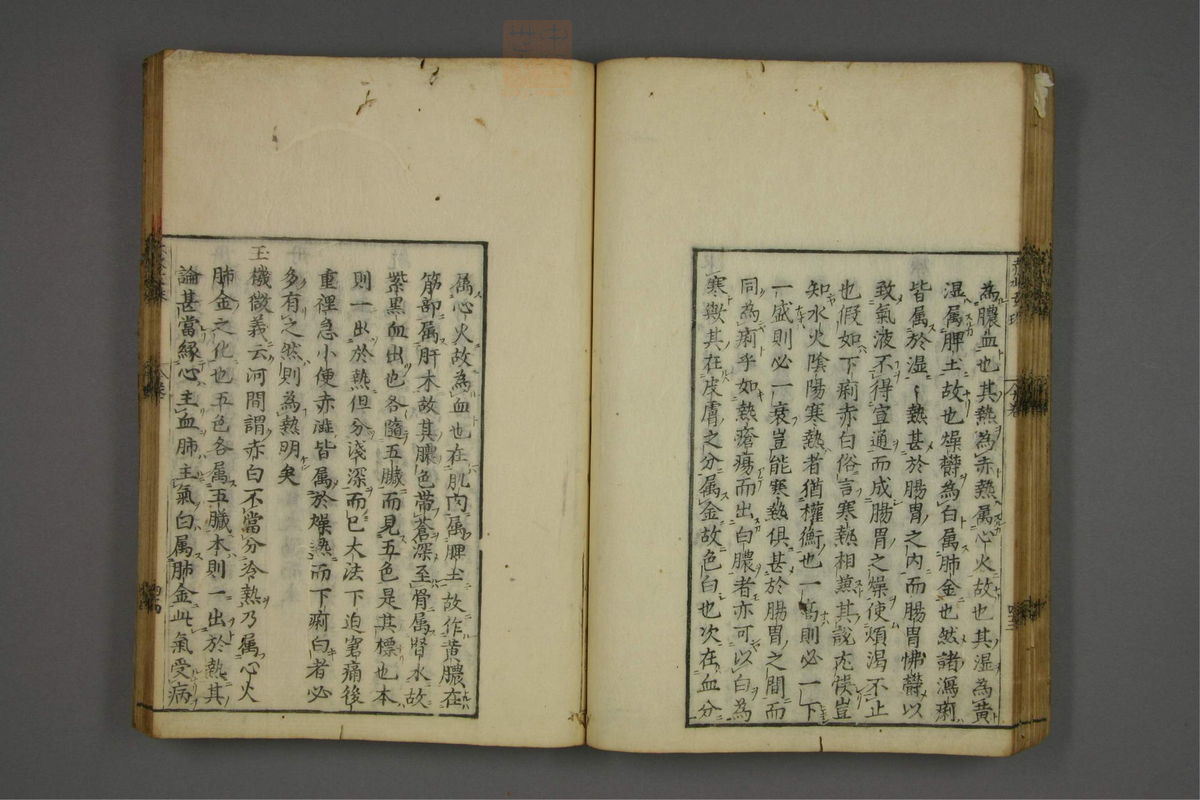 為膿血也其熱為赤熱属心火故也其湿為黄
湿属脾土故也燥欝為白属肺金也然諸瀉痢
皆属於湿〻熱甚於腸胃之内而腸胃怫欝以
致氣液不得宣通而成腸胃之燥使煩渴不止
也假如下痢赤白俗言寒熱相兼其說尤
知水火陰陽寒熱者猶權衡也一高則必一下
一盛則必一衰豈能寒熱俱甚於腸胃之間而
同為痢乎如熱瘡瘍而出白膿者亦可以白為
寒歟其在皮膚之分属金故色白也次在血分
属心火故為血也在肌肉属脾土故作黄膿在
筋部属肝木故其膿色帶蒼深至骨属腎水故
紫黒血出也各隨五臓而見五色是其標也本
則一出於熱但分淺深而已大法下迫窘痛後
重裡急小便赤澁皆属於燥熱而下痢白者必
多有之然則為熱明矣
玉機微義云河間謂赤白不當分冷熱乃属心火
肺金之化也五色各属五臓本則一出於熱其
論甚當緣心主血肺主氣白属肺金此氣受病